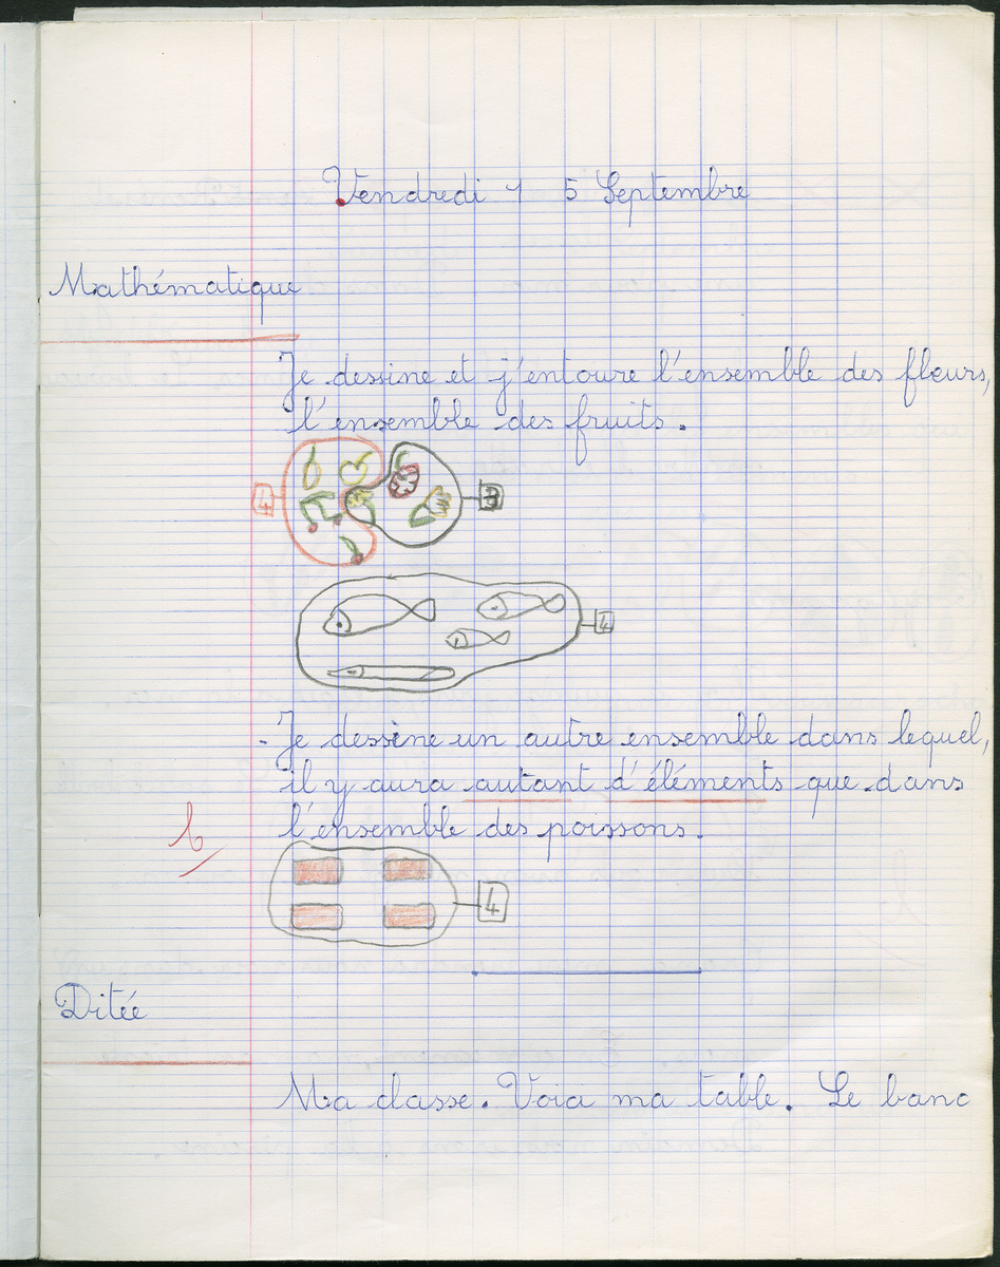 Vendredi 1 5 Septembre
Mathématique
Je dessine et j'entoure l'ensemble des fleurs,
l'ensemble des fruits.
4
3
4
- Je dessène un autre ensemble dans lequel,
il y aura autant d'éléments que dans
l'ensemble des poissons.
b
4
Ditée
Ma classe. Voia ma table. Le banc